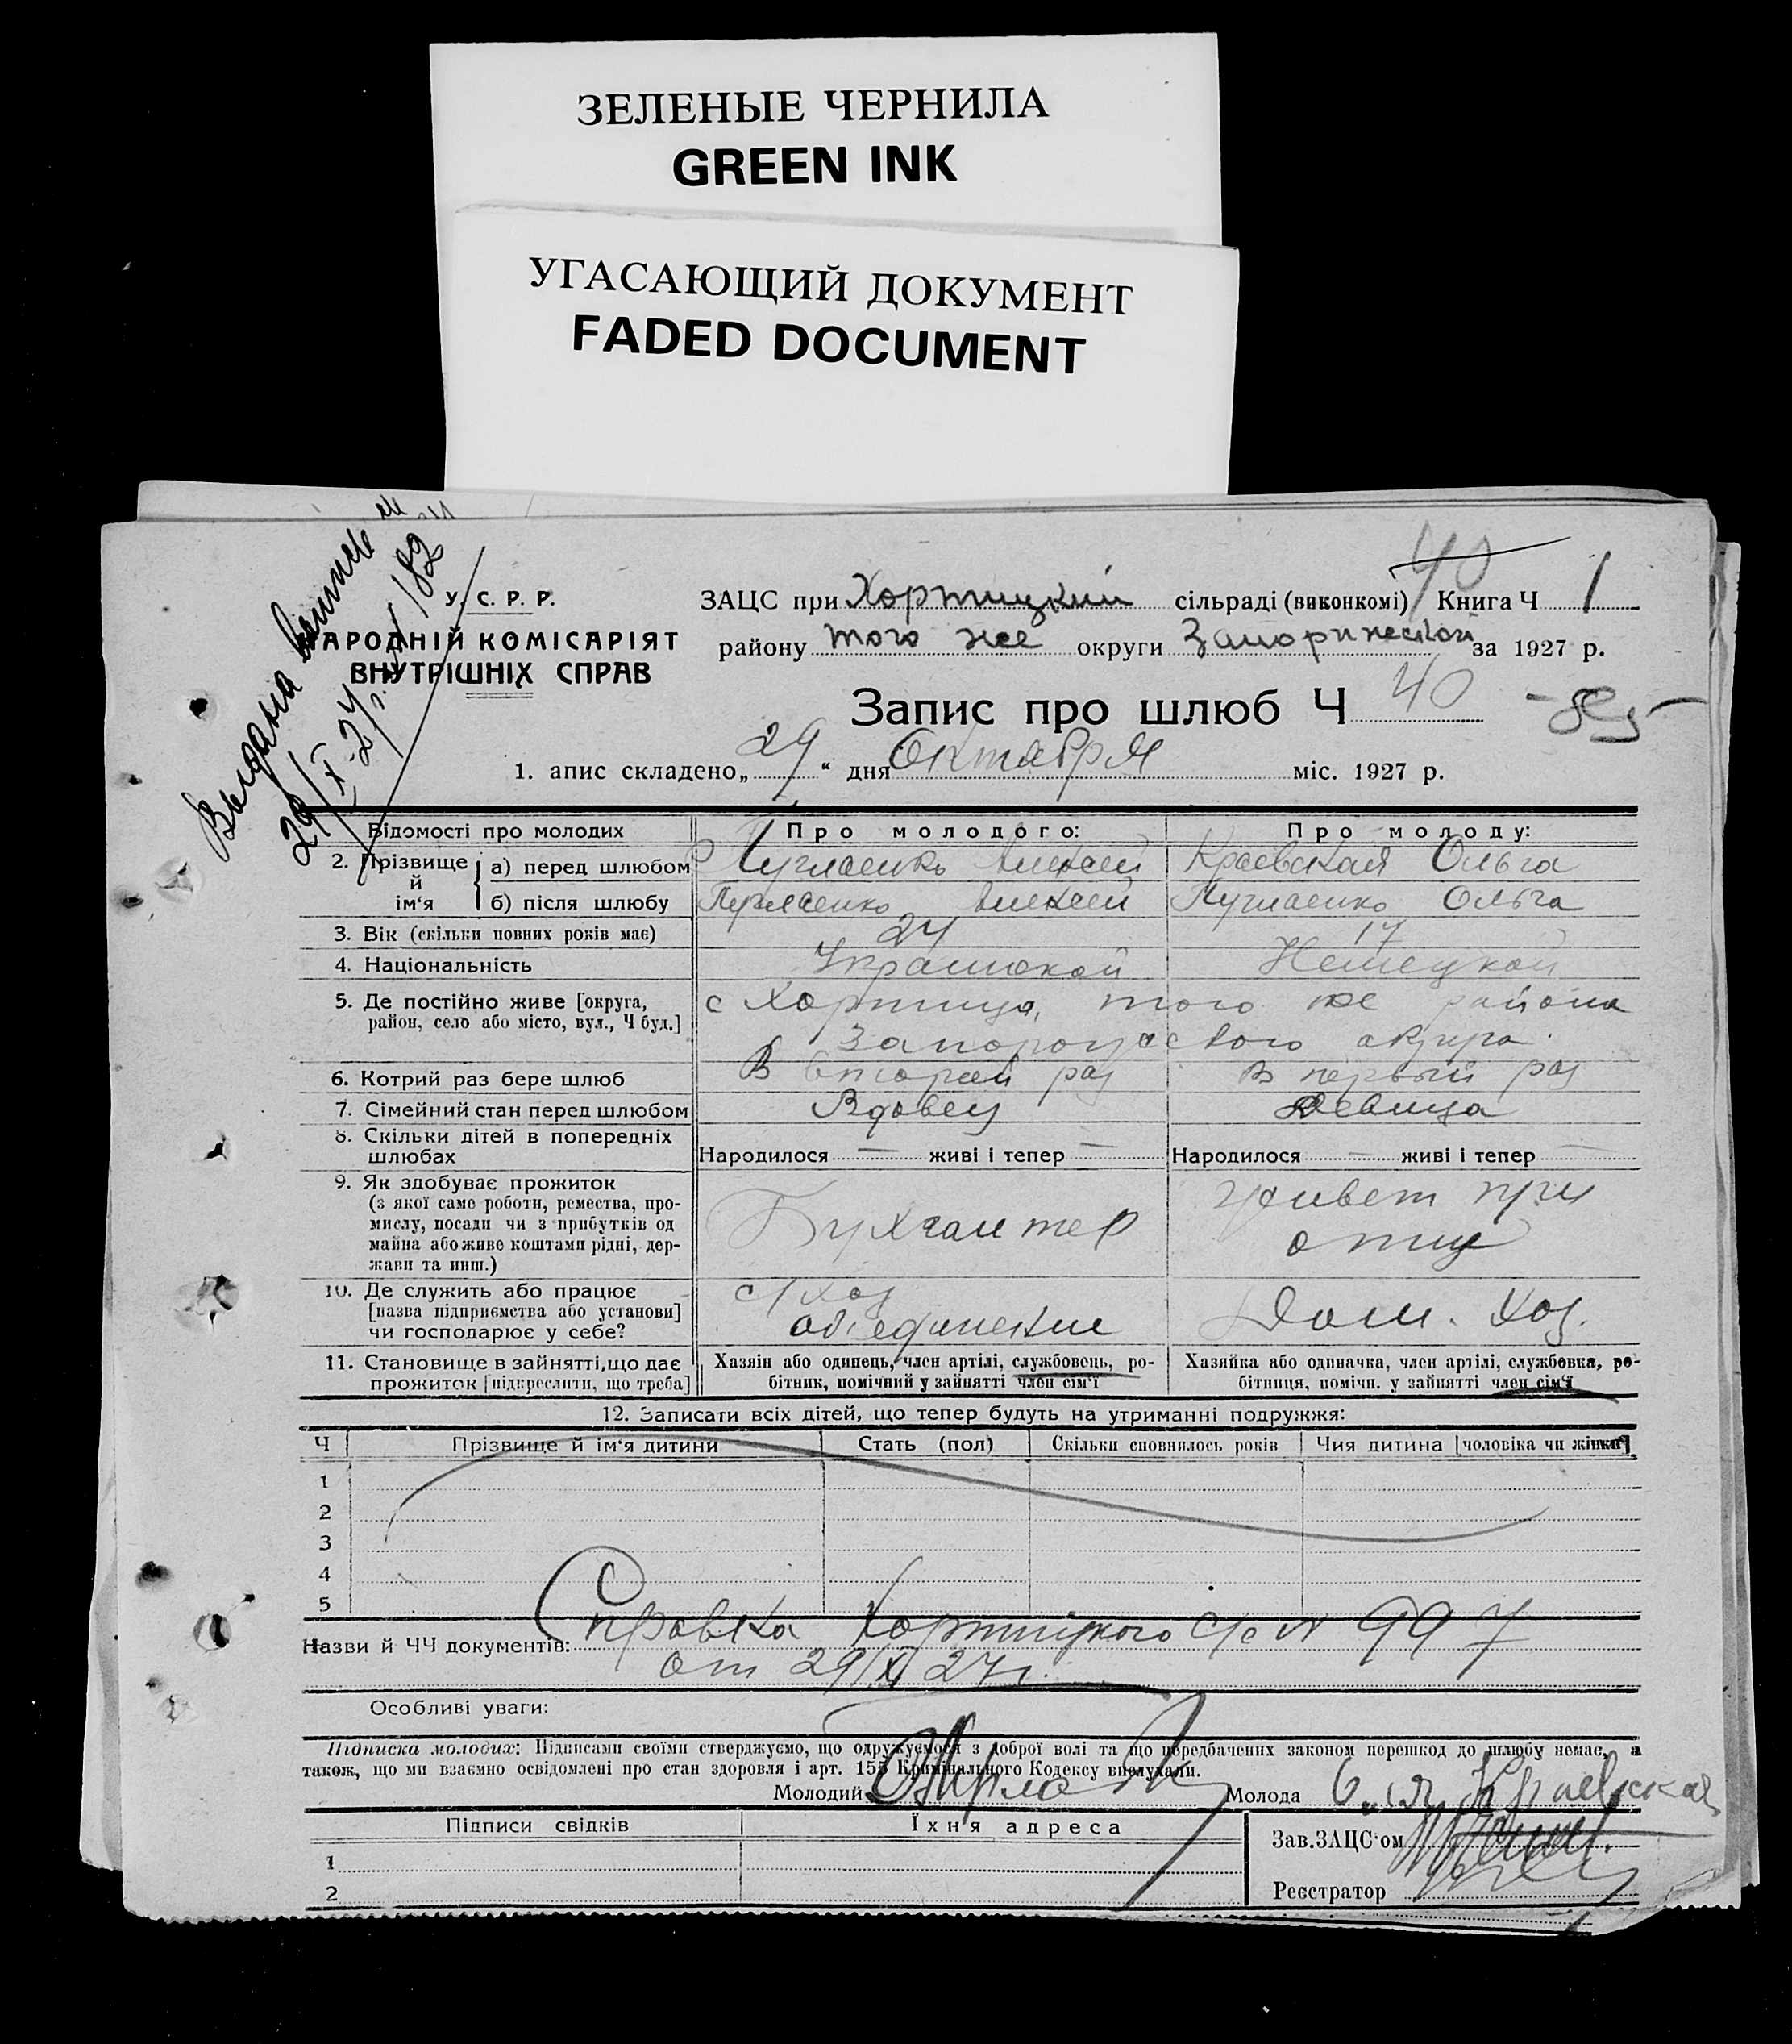 ЗЕЛЕНЫЕ ЧЕРНИЛА
GREEN INK
УГАСАЮЩИЙ ДОКУМЕНТ
FADED DOCUMENT
Выдана выпись
29/XI-27
182
У. С. Р. Р.
НАРОДНІЙ КОМІСАРІЯТ
ВНУТРІШНІХ СПРАВ
40
ЗАЦС при Хортицкий сільраді (виконкомі) Книга Ч 1
району того же округи за 1927 р.
Запис про шлюб Ч 40
1. апис складено „29“ дня Октября міс. 1927 р.
Відомості про молодих Про молодого: Про молоду:
2. Прізвище й ім'я а) перед шлюбом Алексей Краевская Ольга
б) після шлюбу Алексей Ольга
3. Вік (скільки повних років має) 24 17
4. Національність Немецкой
5. Де постійно живе [округа, район, село або місто, вул., Ч буд.] с Хортица, того же района
округа
6. Котрий раз бере шлюб В второй раз В первый раз
7. Сімейний стан перед шлюбом Вдовец Девица
8. Скільки дітей в попередніх шлюбах Народилося — живі і тепер — Народилося — живі і тепер
9. Як здобуває прожиток
(з якої саме роботи, ремества, промислу, посади чи з прибутків од майна або живе коштами рідні, держави та инш.) Бухгалтер живет при отце
10. Де служить або працює
[назва підприємства або установи]
чи господарює у себе? с/хоз объединение Дом. Хоз.
11. Становище в зайнятті, що дає прожиток [підкреслити, що треба] Хазяін або одинець, член артілі, службовець, робітник, помічний у зайнятті член сім'ї Хазяйка або одначка, член артілі, службовка, робітниця, помічн. у зайнятті член сім'ї
12. Записати всіх дітей, що тепер будуть на утриманні подружжя:
Ч Прізвище й ім'я дитини Стать (пол) Скільки сповнилось років Чия дитина [чоловіка чи жінки]
1
2
3
4
5
Назви й ЧЧ документів: Справка Хортицкого с/с № 997
от 29/XI 27 г.
Особливі уваги:
Підписка молодих: Підписами своїми стверджуємо, що одружуємося з доброї волі та що передбачених законом перешкод до шлюбу немає, а
також, що ми взаємно освідомлені про стан здоровля і арт. 155 Кримінального Кодексу вислухали.
Молодий Молода Краевская
Підписи свідків Їхня адреса
Зав.ЗАЦС'ом
1
Реєстратор
2